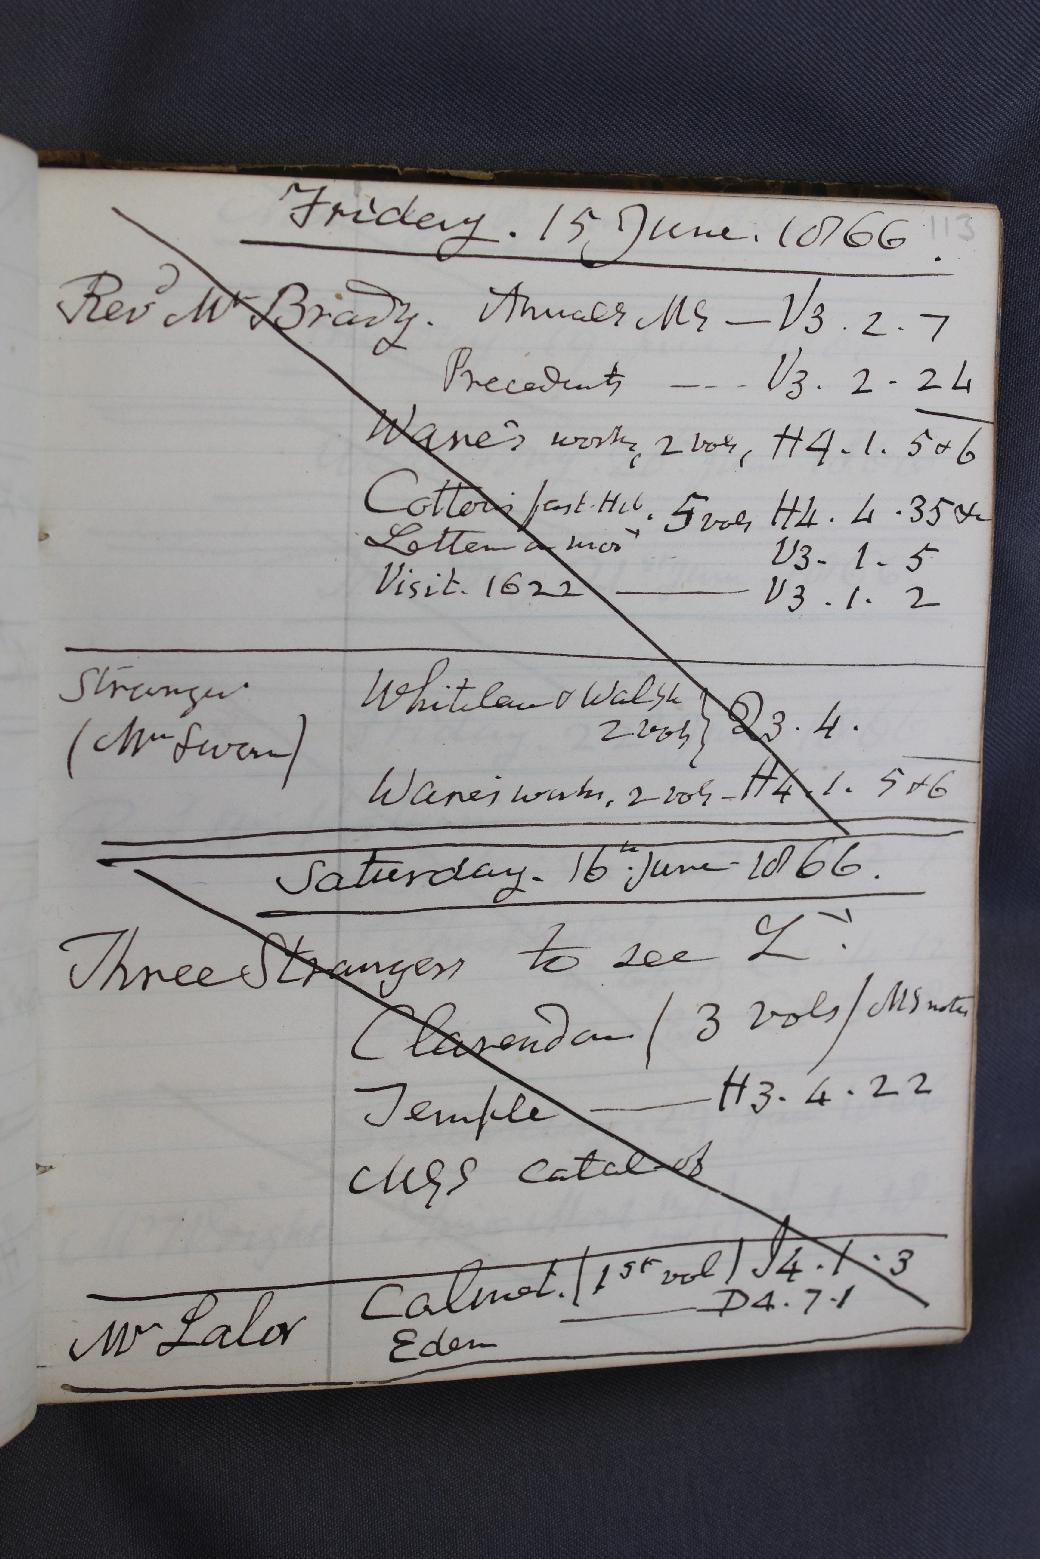 113
Friday. 15 June. 1866.
Revd Mr Brady. Annals MS — V3. 2. 7
Precedents --- V3. 2. 24
Ware's works, 2 vols, H4. 1. 5 & 6
Cotton's fast. Hib. 5 vols H4. 4. 35 &c
V3. 1. 5
Visit. 1622 —— V3. 1. 2
Stranger Whitelaw & Walsh
(Mr Swan) 2 vols} Q3. 4.
Ware's works, 2 vols - H4. 1. 5 & 6
Saturday. 16th June 1866.
Three Strangers to see Ly.
Clarendon (3 vols) MS notes
Temple —— H3. 4. 22
MSS Catal of
Mr Lalor Calmet. (1st vol) J4. 1. 3
Eden —— D4. 7. 1